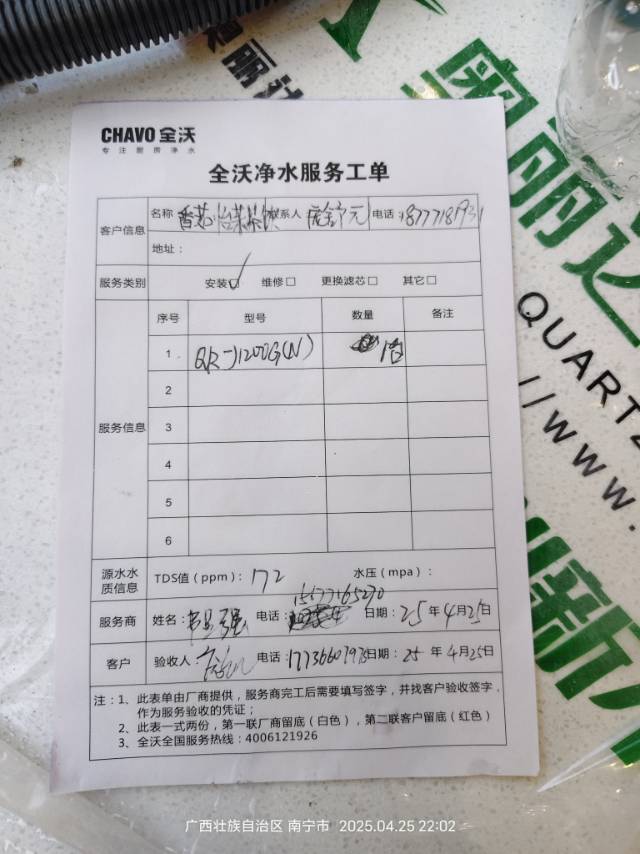 CHAVO 全沃
专注厨房净水
全沃净水服务工单
客户信息
名称 联系人 电话
地址：
服务类别 安装☑ 维修□ 更换滤芯□ 其它□
服务信息
序号 型号 数量 备注
1 1200G(N) 1台
2
3
4
5
6
源水水质信息
TDS值（ppm）：172 水压（mpa）：
服务商 姓名： 强 电话： 日期：25年4月25日
客户 验收人： 电话： 日期：25年4月25日
注：1、此表单由厂商提供，服务商完工后需要填写签字，并找客户验收签字，
作为服务验收的凭证；
2、此表一式两份，第一联厂商留底（白色），第二联客户留底（红色）
3、全沃全国服务热线：4006121926
奥丽达
QUARTZ
//WWW.
创新
广西壮族自治区 南宁市 2025.04.25 22:02